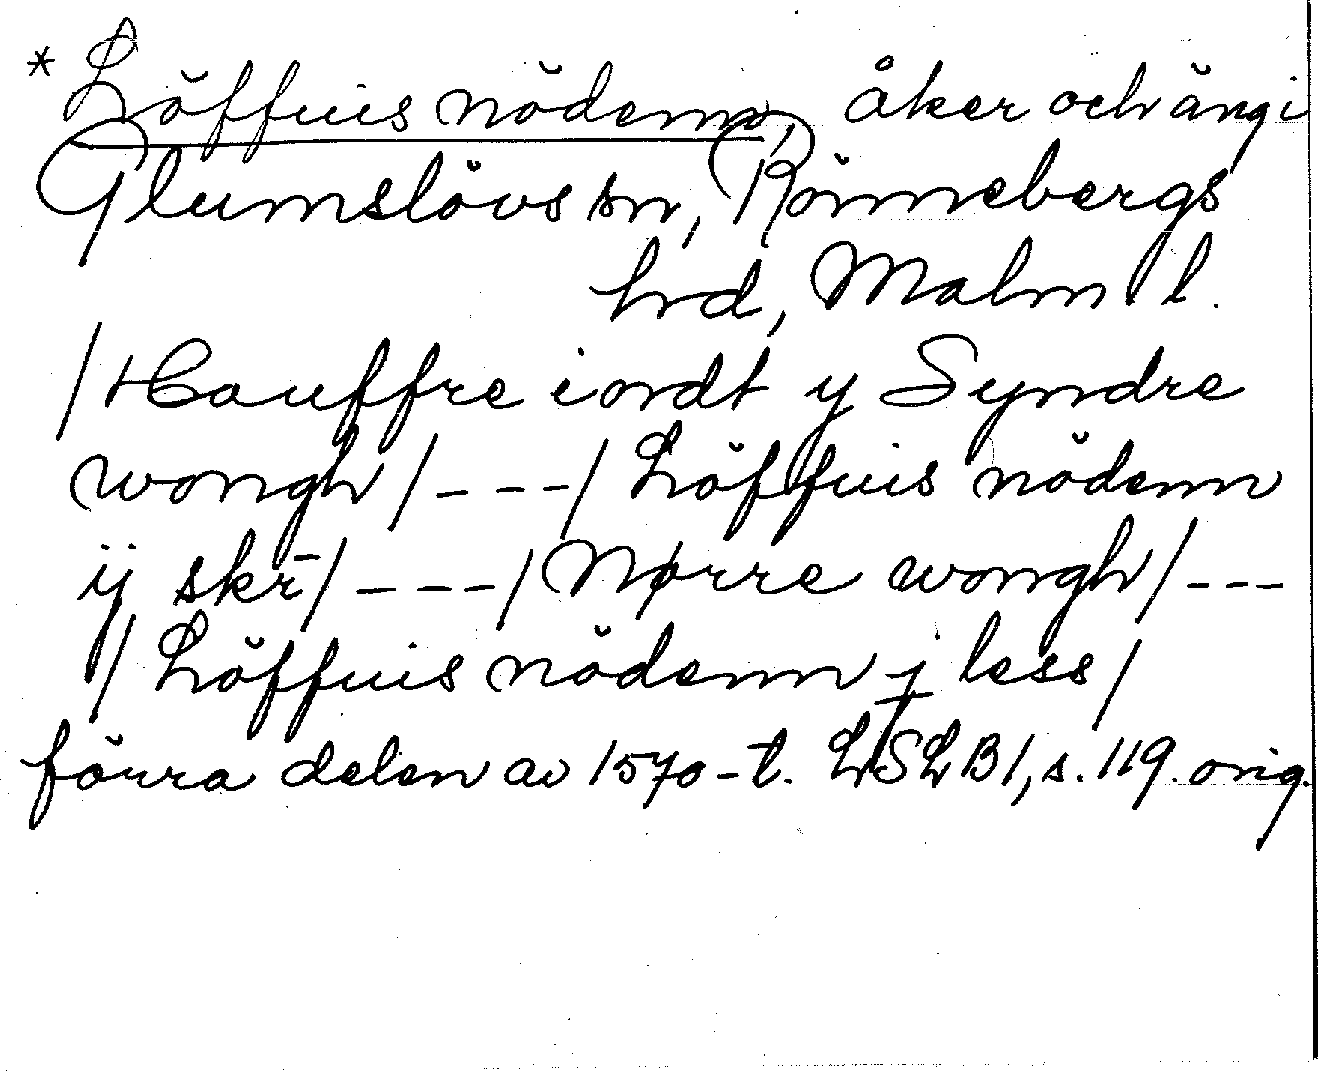 * Löffuis nödenn, åker och äng i
Glumslövs sn, Rönnebergs
hrd, Malm l.
/ Hauffre iordt y Syndre
wongh / - - - / Löffuis nödenn
ij skr̄ / - - - / Nørre wongh / - - -
/ Löffuis nödenn j less /
förra delen av 1570-t. LSLB 1, s. 119. orig.